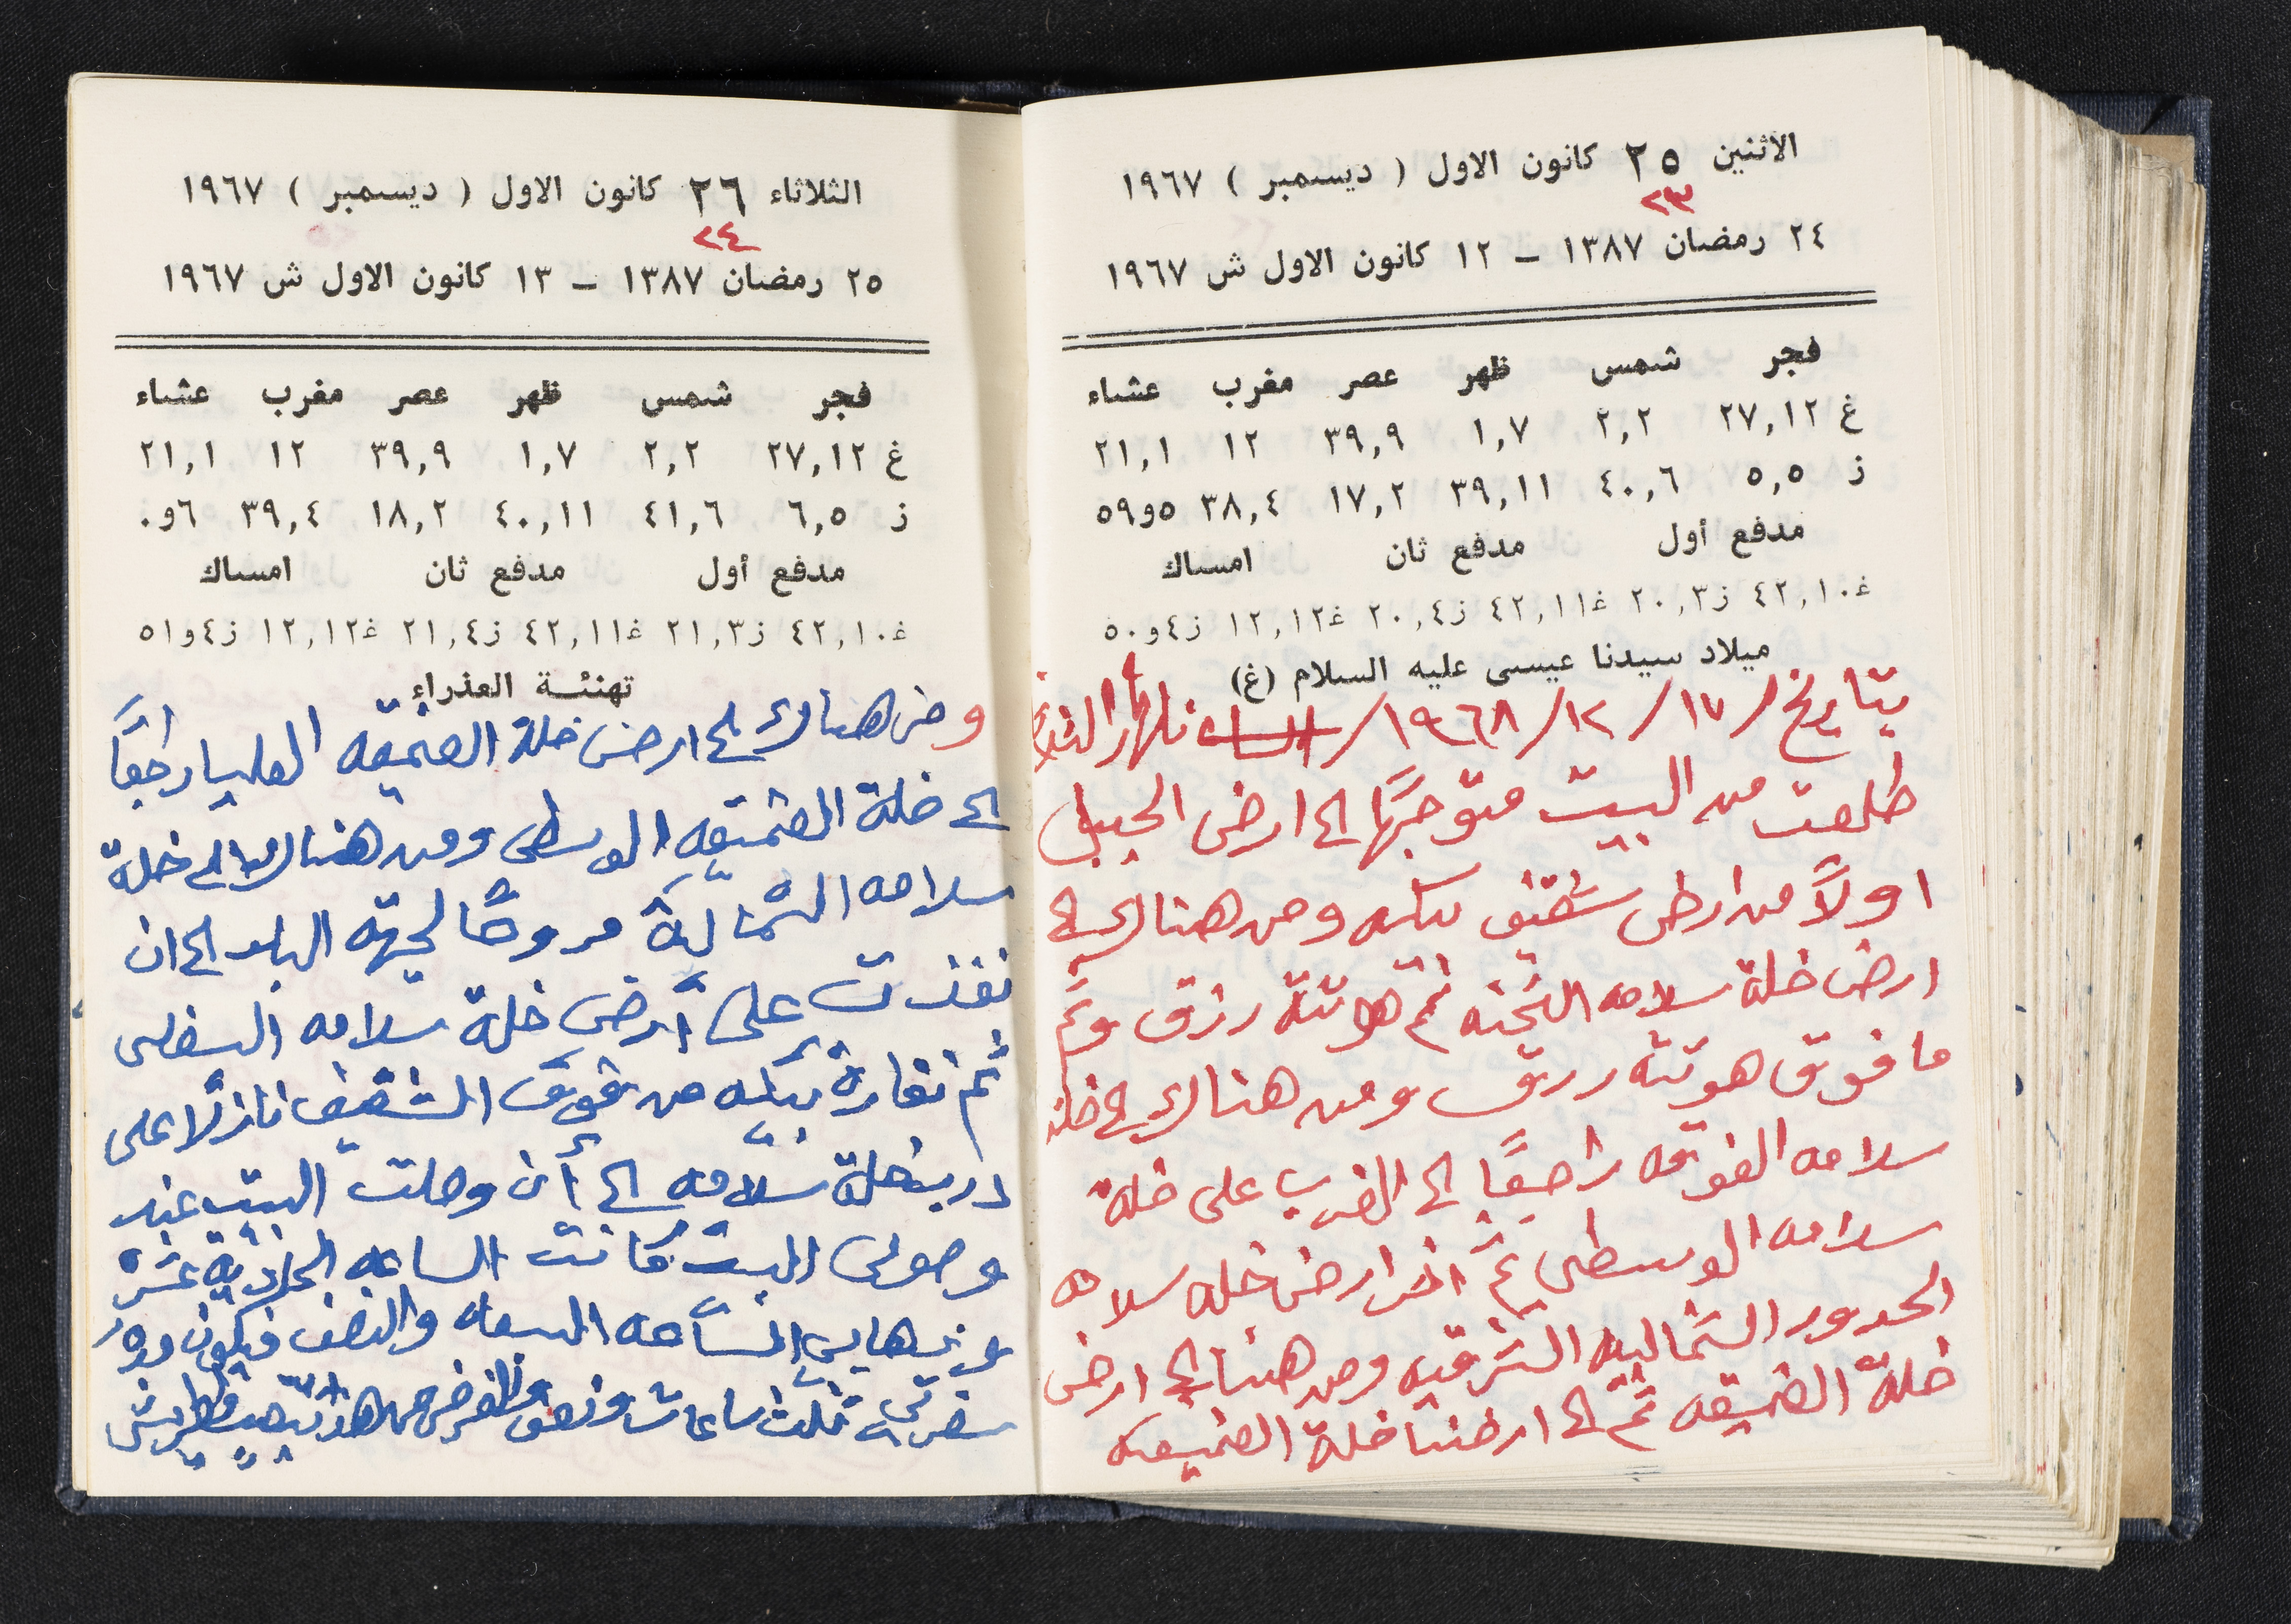 الاثنين ٢٥ كانون الاول ( ديسمبر ) ١٩٦٧
٢٣
٢٤ رمضان ١٣٨٧ – ١٢ كانون الاول ش ١٩٦٧
فجر شمس ظهر عصر مغرب عشاء
غ ٢٧,١٢ ٢,٢ ١,٧ ٣٩,٩ ١٢ ٢١,١
ز ٥,٥ ٤٠,٦ ٣٩,١١ ١٧,٢ ٣٨,٤ ٥و٥٩
مدفع أول مدفع ثان امساك
غ٤٢,١٠ ز٢٠,٣ غ٤٢,١١ ز٢٠,٤ غ١٢,١٢ ز٤و٥٠
ميلاد سيدنا عيسى عليه السلام (غ)
بتاريخ / ١٧ / ١٢ / ١٩٦٨ / المساء نهار الثلاثاء
طلعت من البيت متوجهًا الى ارض الجبل
اولاً من ارض شقيف بكه ومن هناك الى
ارض خلة سلامه التحته ثم هوتة رزق وثم
ما فوق هوتة رزق ومن هناك الى خلة
سلامه الفوقه راجعًا الى الغرب على خلة
سلامه الوسطى ثم اخر ارض خله سلامه
الحدور الشماليه الشرقيه ومن هنا الى ارض
خلة الضميقه ثم الى ارضنا خلة الضميقه
الثلاثاء ٢٦ كانون الاول ( ديسمبر ) ١٩٦٧
٢٤
٢٥ رمضان ١٣٨٧ – ١٣ كانون الاول ش ١٩٦٧
فجر شمس ظهر عصر مغرب عشاء
غ ٢٧,١٢ ٢,٢ ١,٧ ٣٩,٩ ١٢ ٢١,١
ز ٦,٥ ٤١,٦ ٤٠,١١ ١٨,٢ ٣٩,٤ ٦و٠
مدفع أول مدفع ثان امساك
غ٤٢,١٠ ز٢١,٣ غ٤٢,١١ ز٢١,٤ غ١٢,١٢ ز٤و٥١
تهنئة العذراء
ومن هناك الى ارض خلة الضميقه العليا راجعًا
الى خلة الضميقه الوسطى ومن هناك الى خلة
سلامه الشمالية مروحًا لجهة البلد الى ان
نفذت على أرض خلة سلامه السفلى
ثم نقارة بكه من فوق الشقيف نازلًا على
درب خلة سلامه الى أن وصلت البيت عند
وصولى البيت كانت الساعه الحادية عشره
وذهابي الساعه السبعه والنصف فيكون
سفرتي ثلث ساعات ونصف والغرض من هذا